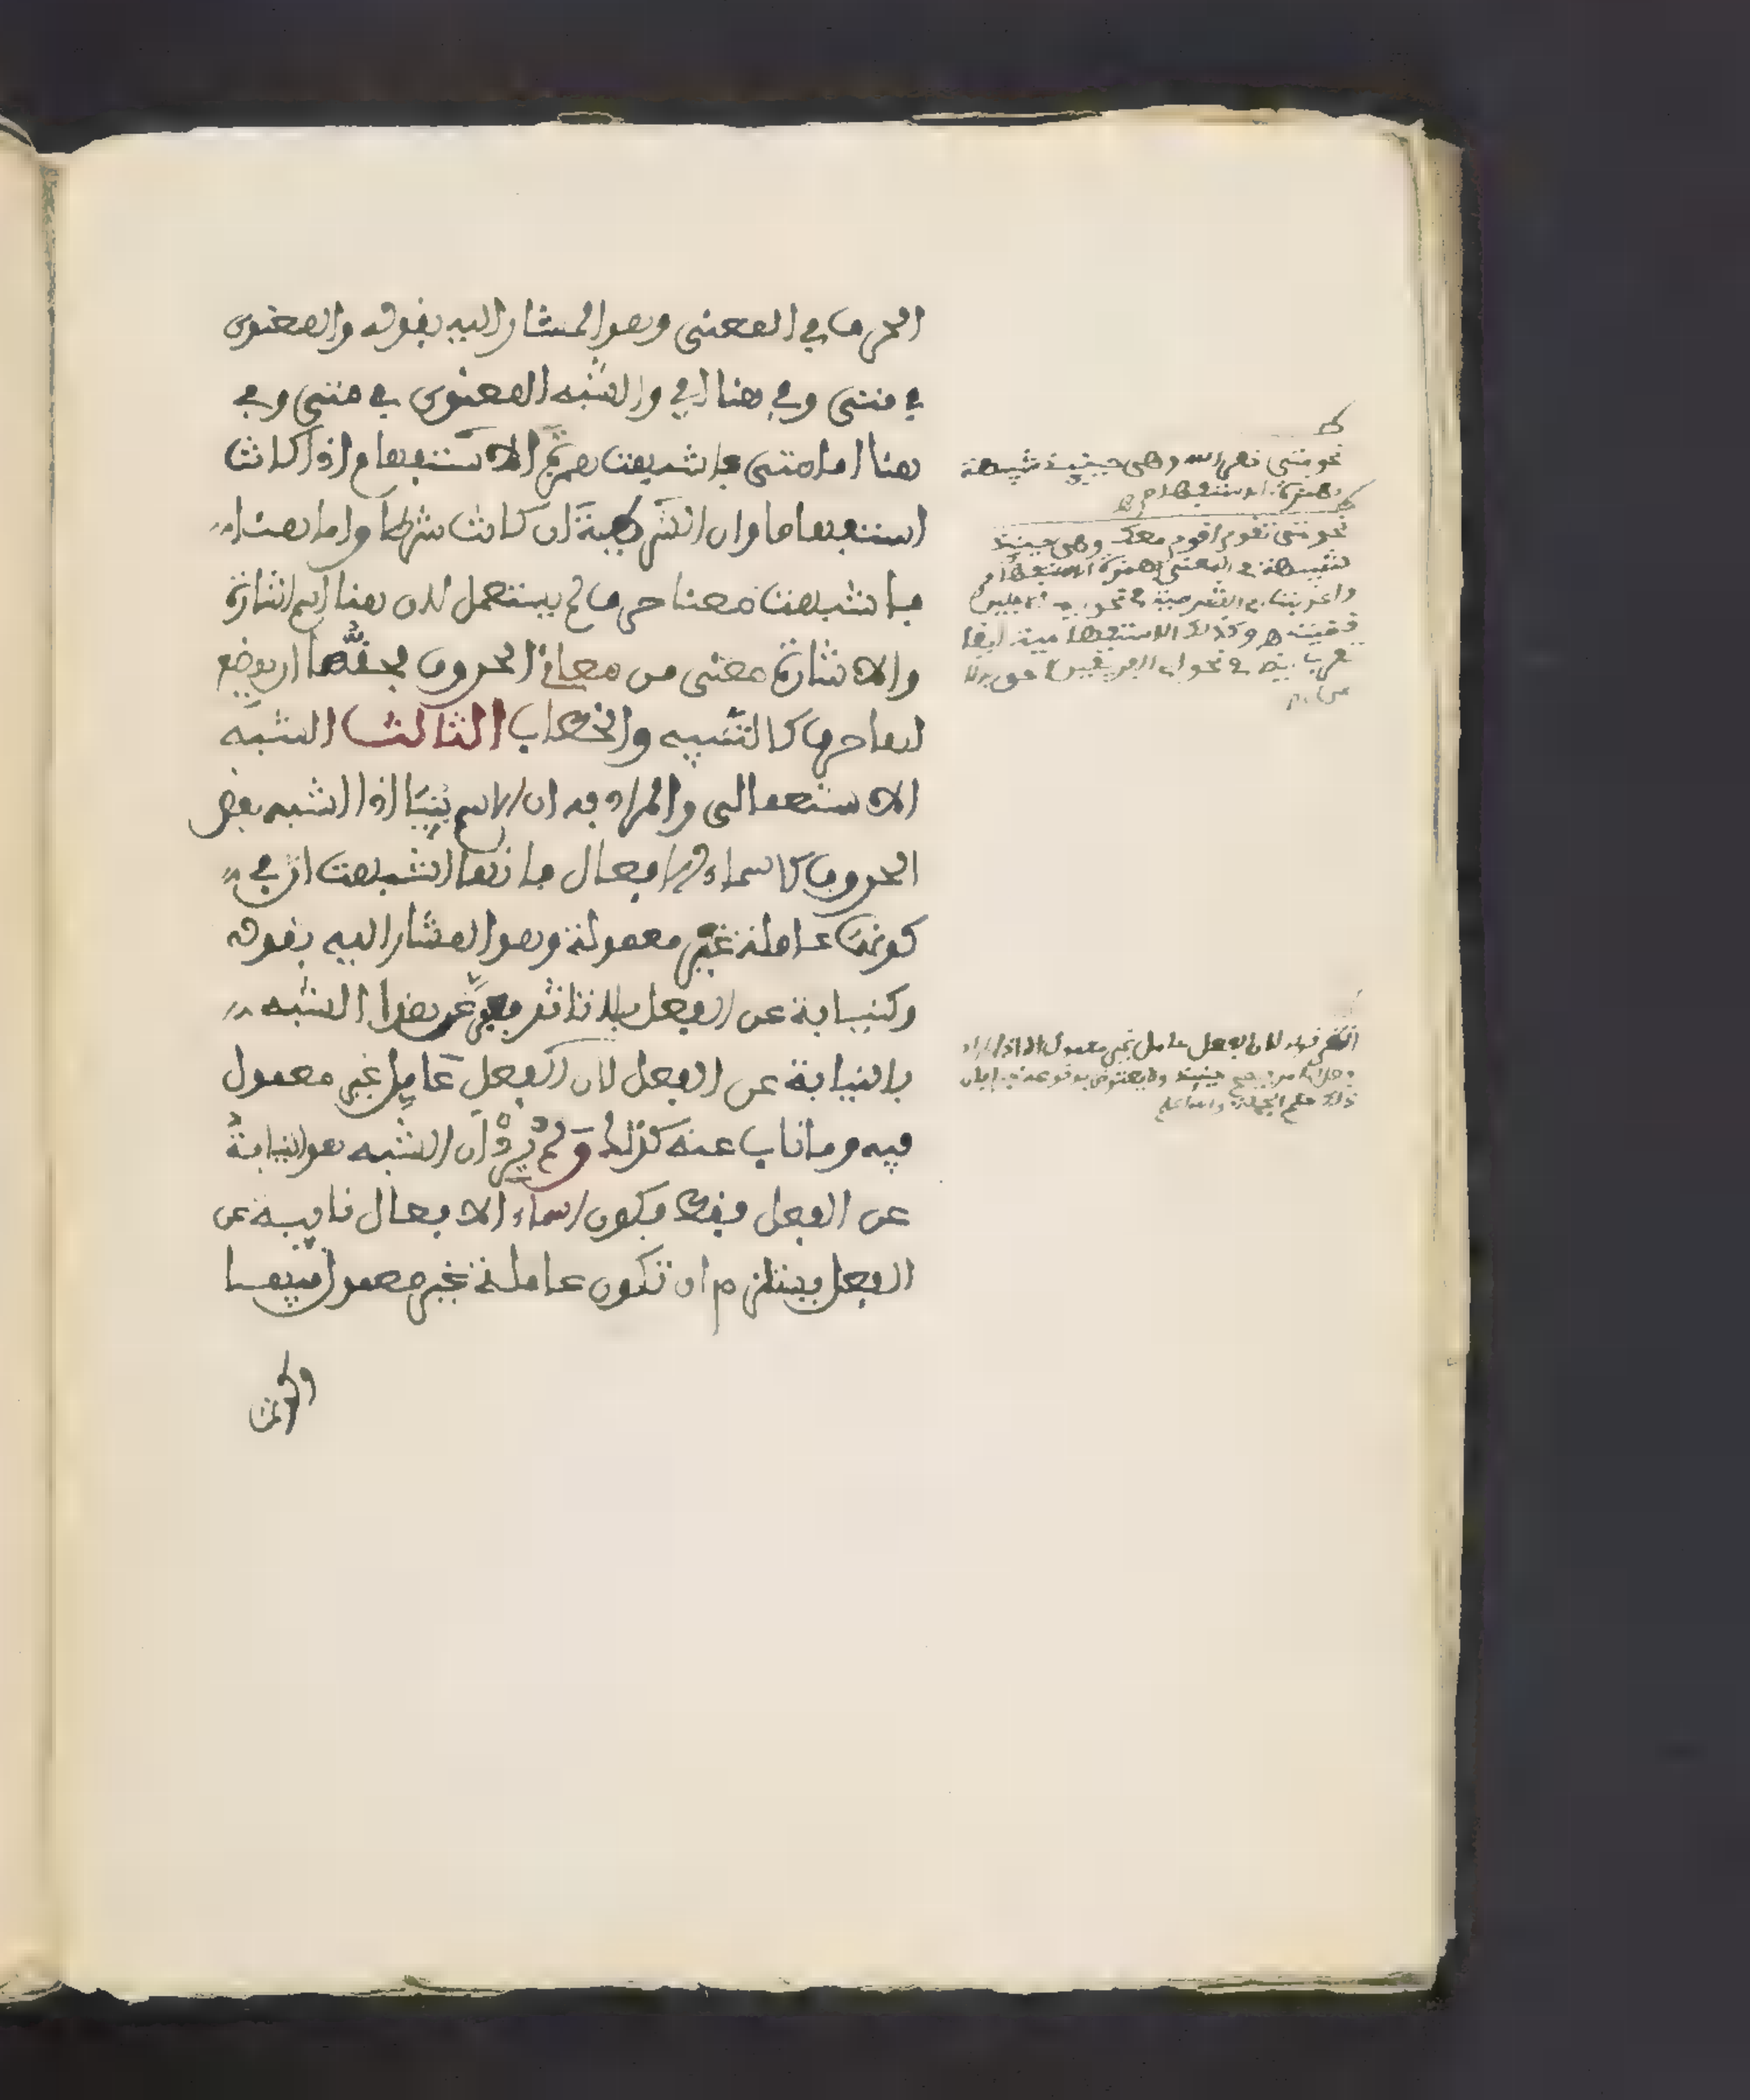 الحرف في المعنى وهو المشار اليه بقوله والمعنوى
في متى وفي هنا اي والشبه المعنوى في متى وفي
هنا اما متى فاشبهت همزة الاستفهام اذا كانت
استفهاما وان الشرطية ان كانت شرطا واما هنا
فاشبهت معنا حرف لم يستعمل لان هنا اسم اشارة
والاشارة معنى من معاني الحروف فحقها ان يوضع
لها حرف كالتنبيه والخطاب الثالث الشبه
الاستعمالى والمراد به ان الاسم يبنا اذا اشبه بعض
الحروف كاسماء الافعال فانها اشبهت ان في
كونها عاملة غير معمولة وهو المشار اليه بقوله
وكنيابة عن الفعل بلا تاثر فعبر عن هذا الشبه
بالنيابة عن الفعل لان الفعل عامل غير معمول
فيه وما ناب عنه كذلك ولم يرد ان الشبه هو النيابة
عن الفعل فقط فكون اسماء الافعال نايبة عن
الفعل يستلزم ان تكون عاملة غير معمول فيها
ولكن
نحو متى نصر الله وهى حينيذ شبيهة
بهمزة الاستفهام
نحو متى تقوم اقوم معك وهى حينيذ
شبيهة في المعنى بهمزة الاستفهام
واعربت اي الشرطية في نحو
وكذلك الاستفهامية ايضا
في نحو اي الفريقين احق بالا
من
انظر قوله لان الفعل عامل غير معمول الا اذا اراد
حينيذ ولا يعترض بوقوعه
ذلك حكم الجملة والله اعلم